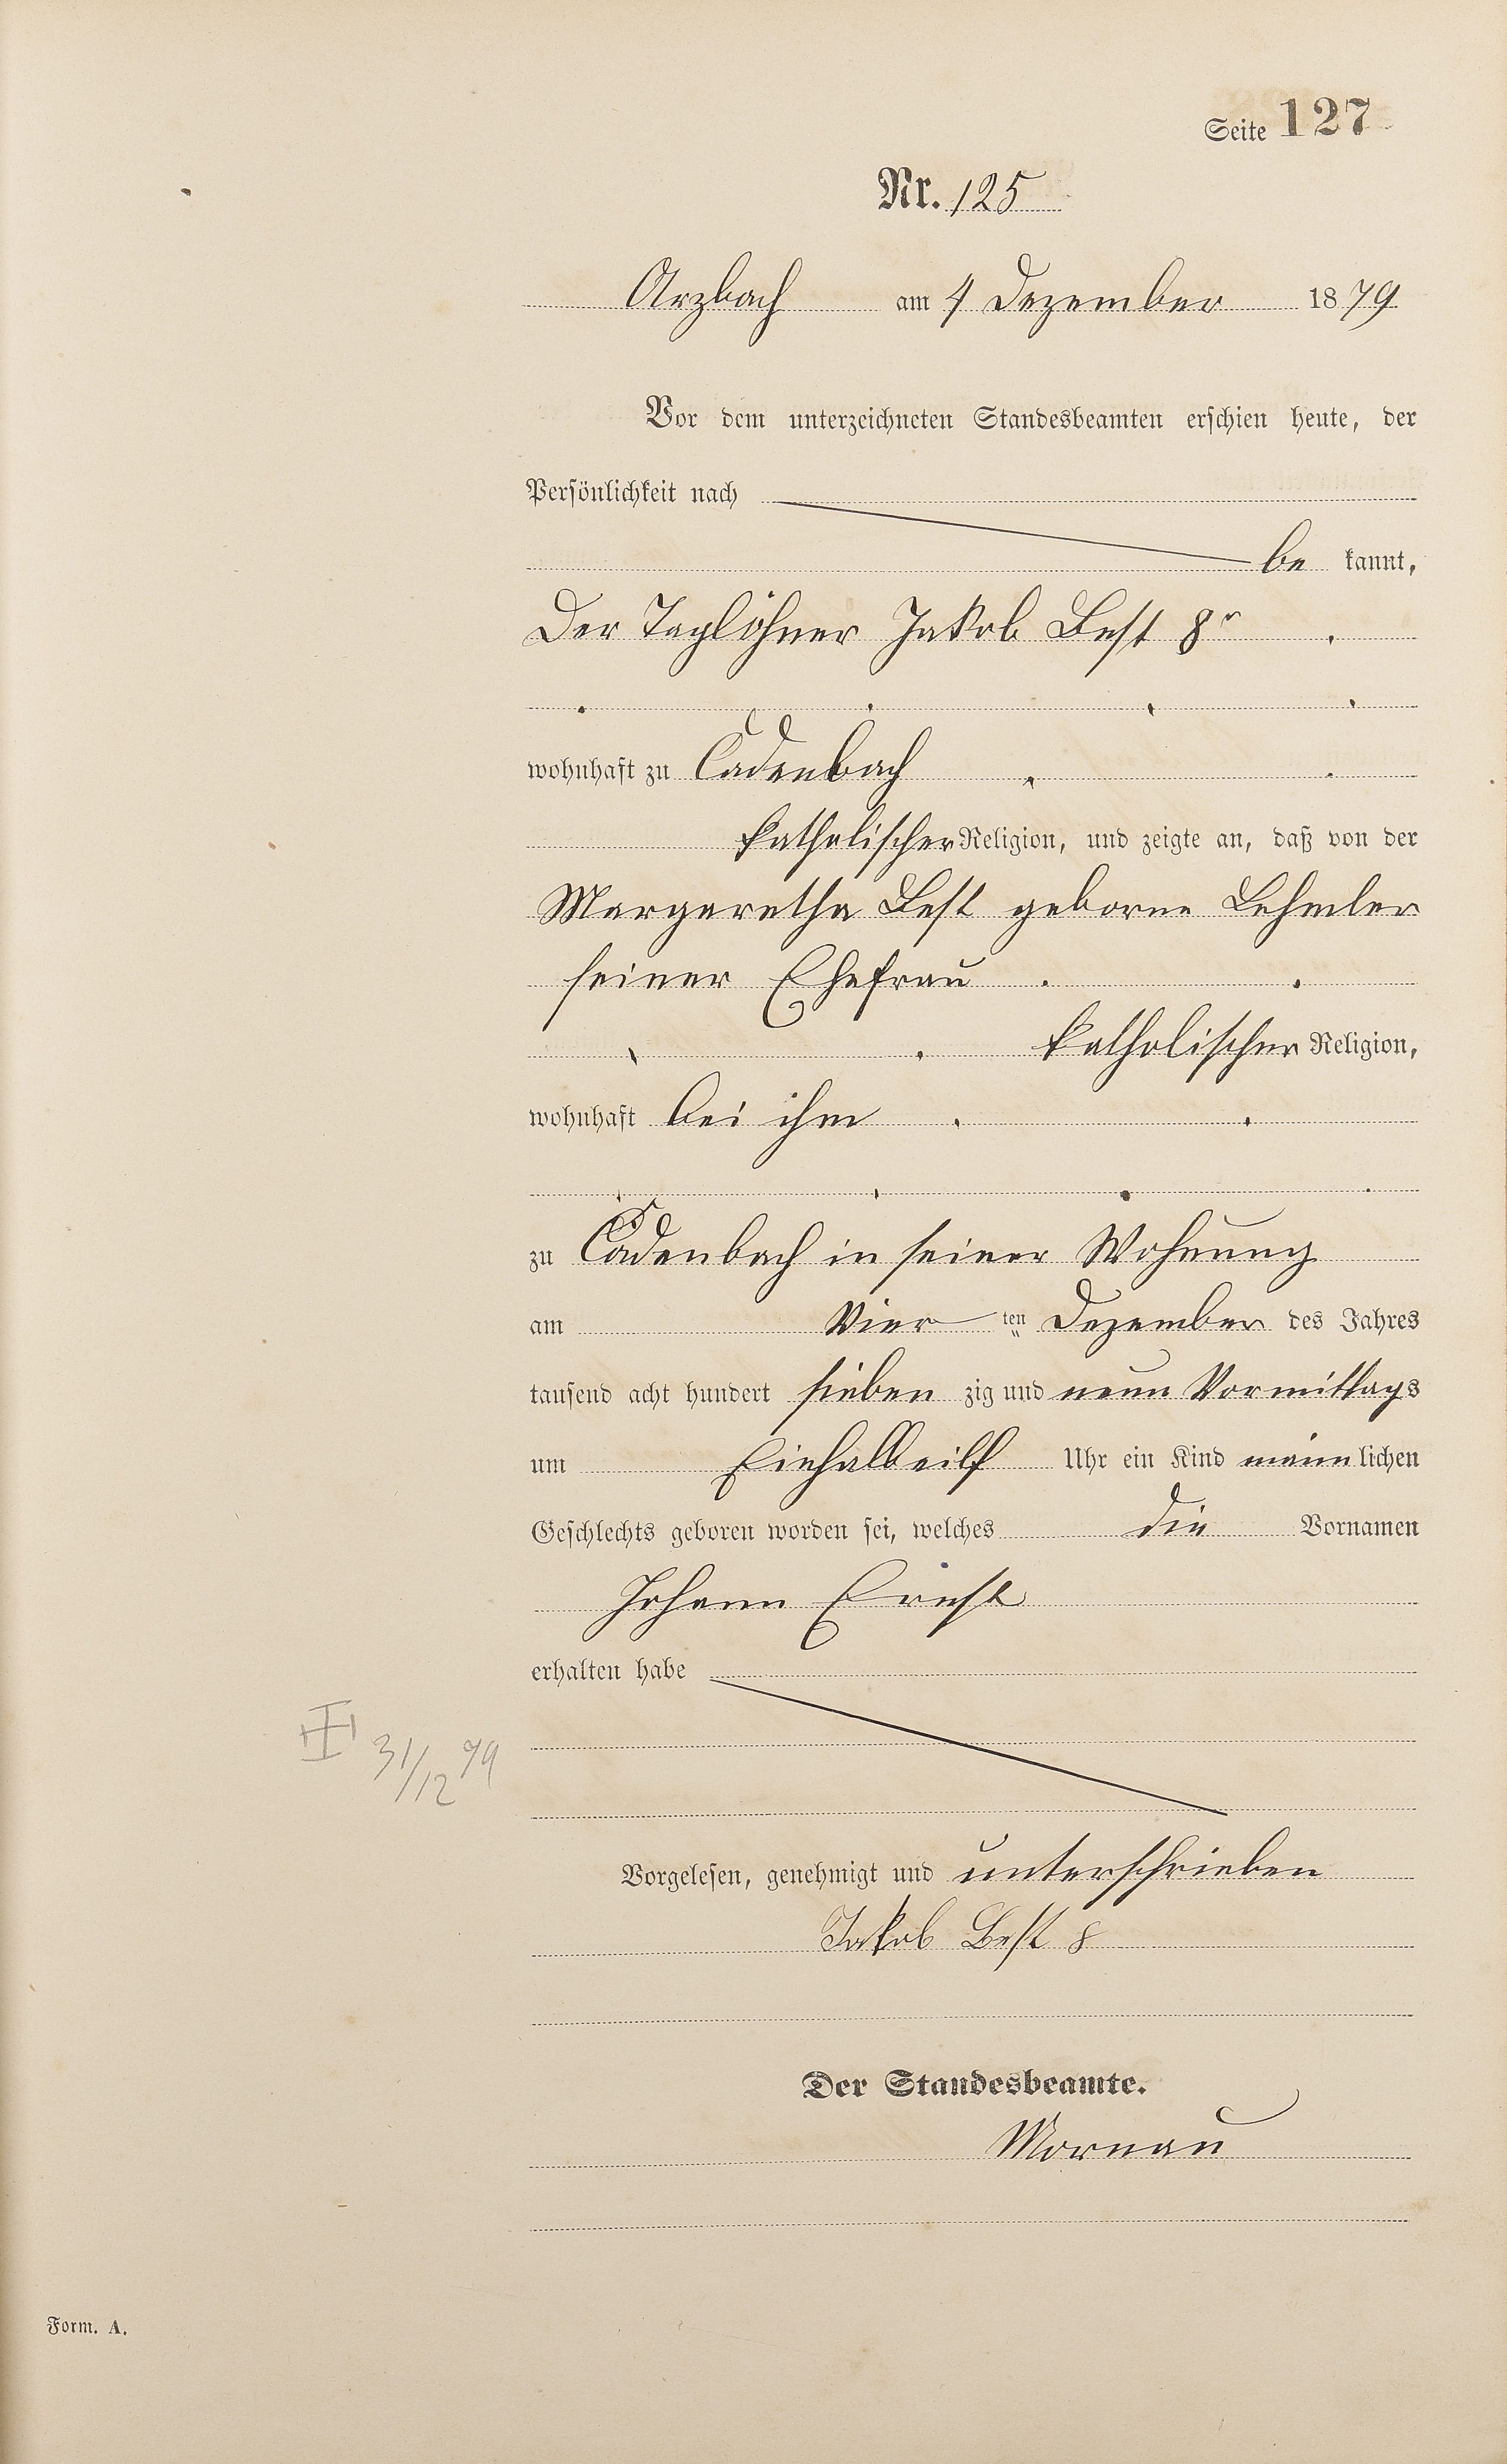 Seite 127
Nr. 125
Arzbach am 4 Dezember 1879
Vor dem unterzeichneten Standesbeamten erschien heute, der
Persönlichkeit nach
be kannt,
Der Taglöhner Jakob Best 8r
wohnhaft zu Cadenbach
katholischer Religion, und zeigte an, daß von der
Margaretha Best geborne Lehmler
seiner Ehefrau
katholischer Religion,
wohnhaft bei ihm
zu Cadenbach in seiner Wohnung
am Vier ten Dezember des Jahres
tausend acht hundert sieben zig und neun Vormittags
um Einhalbeilf Uhr ein Kind männlichen
Geschlechts geboren worden sei, welches die Vornamen
Johann Ernst
erhalten habe
31/12 79
Vorgelesen, genehmigt und unterschrieben
Jakob Best 8
Der Standesbeamte.
Mornau
Form. A.